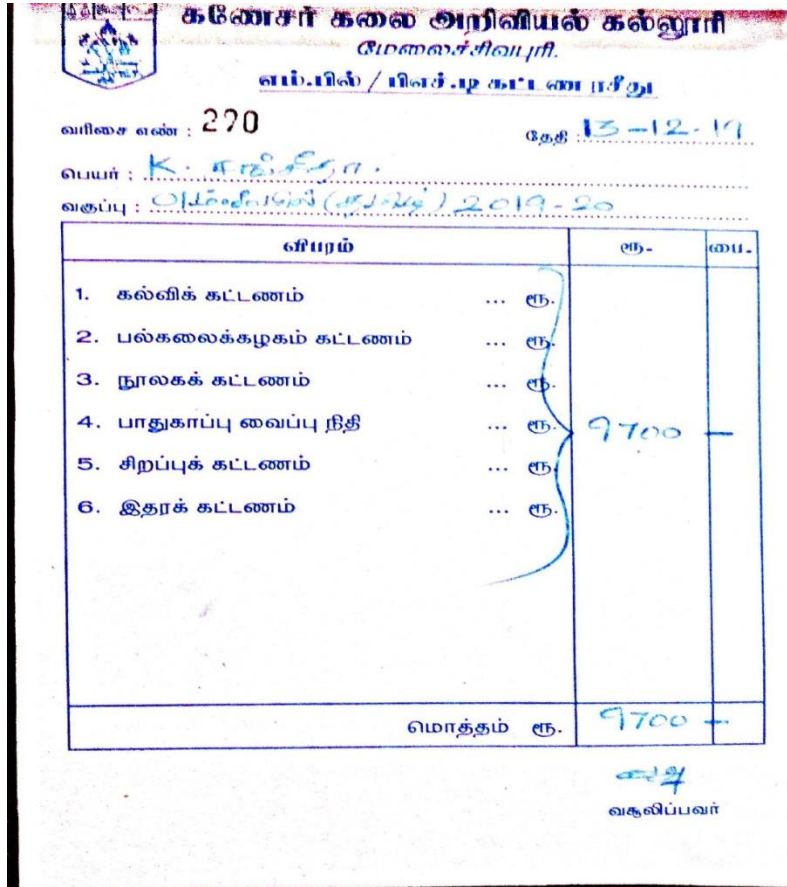 கணேசர் கலை அறிவியல் கல்லூரி
மேலைச்சிவபுரி.
எம்.பில் / பிஎச்.டி கட்டண ரசீது
வரிசை எண் : 270
தேதி : 13-12-19
பெயர் : K. சங்கீதா.
வகுப்பு : (தமிழ்) 2019-20
விபரம் ரூ- பை-
1. கல்விக் கட்டணம் ... ரூ.
2. பல்கலைக்கழகம் கட்டணம் ... ரூ.
3. நூலகக் கட்டணம் ... ரூ.
4. பாதுகாப்பு வைப்பு நிதி ... ரூ. 9700 —
5. சிறப்புக் கட்டணம் ... ரூ
6. இதரக் கட்டணம் ... ரூ.
மொத்தம் ரூ. 9700 —
வசூலிப்பவர்